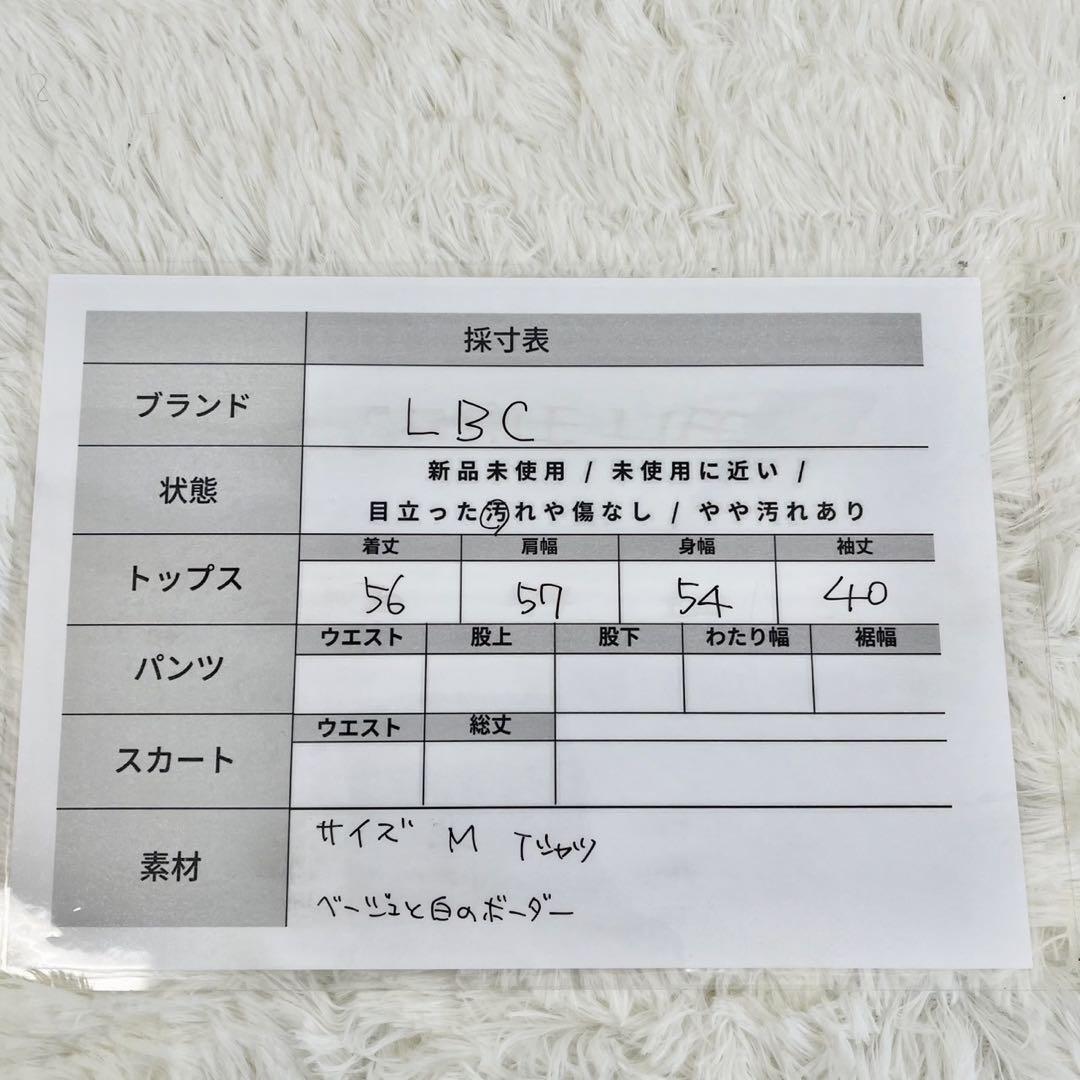 採寸表
ブランド LBC
状態 新品未使用 / 未使用に近い /
目立った汚れや傷なし / やや汚れあり
トップス 着丈 肩幅 身幅 袖丈
56 57 54 40
パンツ ウエスト 股上 股下 わたり幅 裾幅
スカート ウエスト 総丈
素材 サイズ M Tシャツ
ベージュと白のボーダー